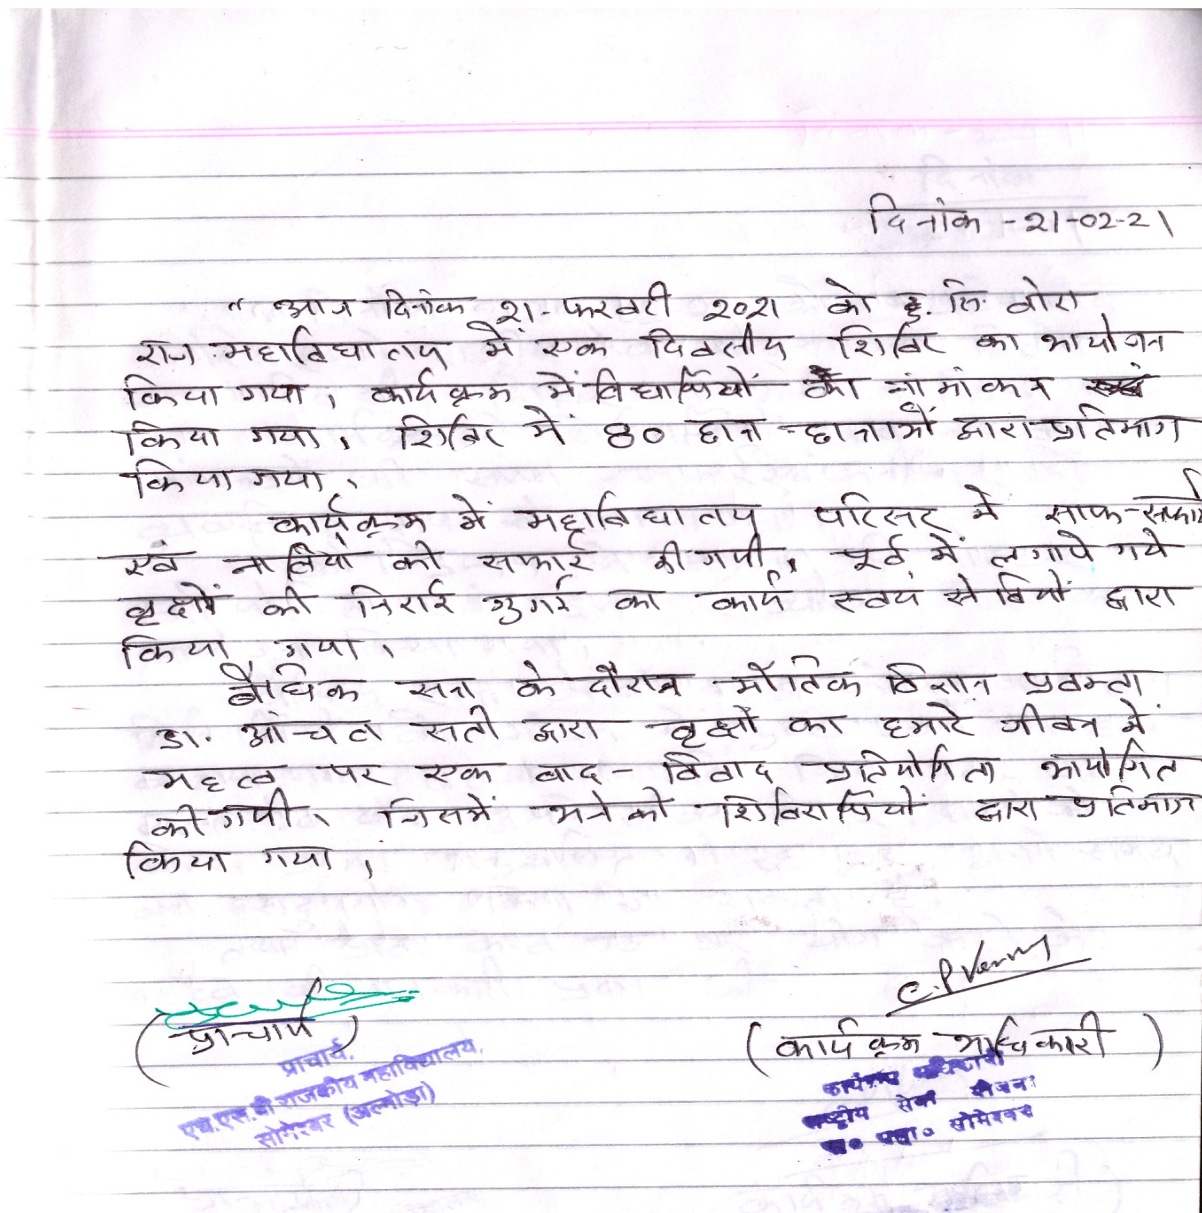 दिनांक - 21-02-21
" आज दिनांक 21-फरवरी 2021 को हु. सि. बोरा
राज. महाविद्यालय में एक दिवसीय शिविर का आयोजन
किया गया। कार्यक्रम में विद्यार्थियों का नांमांकन
किया गया। शिविर में 80 छात्र-छात्राओं द्वारा प्रतिभाग
किया गया।
कार्यक्रम में महाविद्यालय परिसर में साफ-सफाई
एवं नालियों की सफाई की गयी। पूर्व में लगाये गये
वृक्षों की निराई गुगाई का कार्य स्वयं सेवियों द्वारा
किया गया।
बौधिक सत्र के दौरान भौतिक विज्ञान प्रवक्ता
डा. आंचल सती द्वारा वृक्षों का हमारे जीवन में
महत्व पर एक वाद-विवाद प्रतियोगिता आयोजित
की गयी। जिसमें अनेकों शिविरार्थियों द्वारा प्रतिभाग
किया गया।
C.P. Verma
(प्राचार्य) (कार्यक्रम अधिकारी)
प्राचार्य, कार्यक्रम अधिकारी
एच.एस.बी राजकीय महाविद्यालय, राष्ट्रीय सेवा योजना
सोमेश्वर (अल्मोड़ा) सोमेश्वर